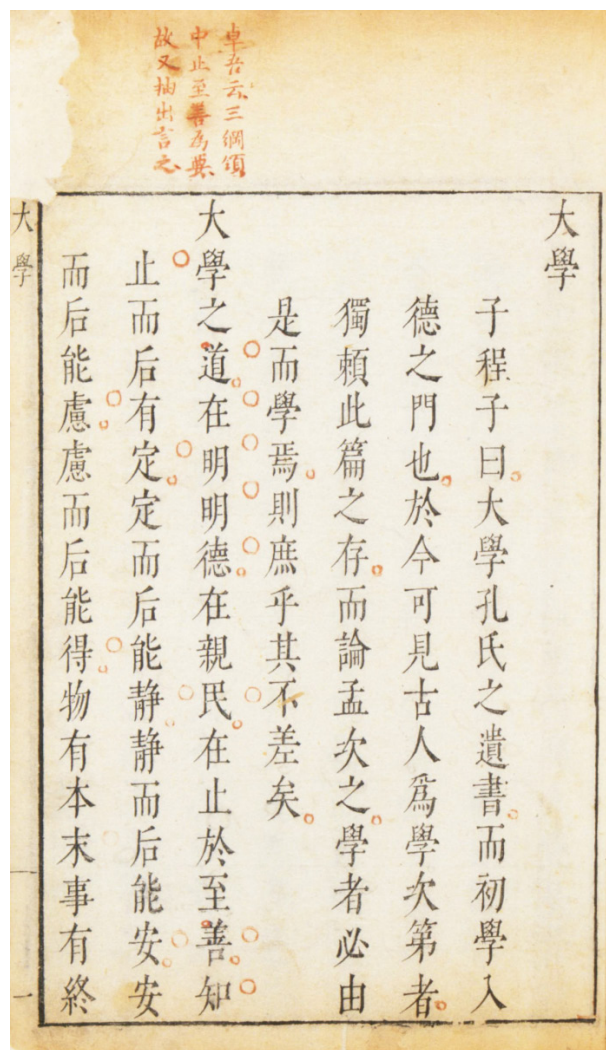 卓吾云三綱領
中止至善為要
故又抽出言之
大學
子程子曰大學孔氏之遺書而初學入
德之門也於今可見古人爲學次第者
獨頼此篇之存而論孟次之學者必由
是而學焉則庶乎其不差矣
大學之道在明明德在親民在止於至善知
止而后有定定而后能静静而后能安安
而后能慮慮而后能得物有本末事有終
大學
一